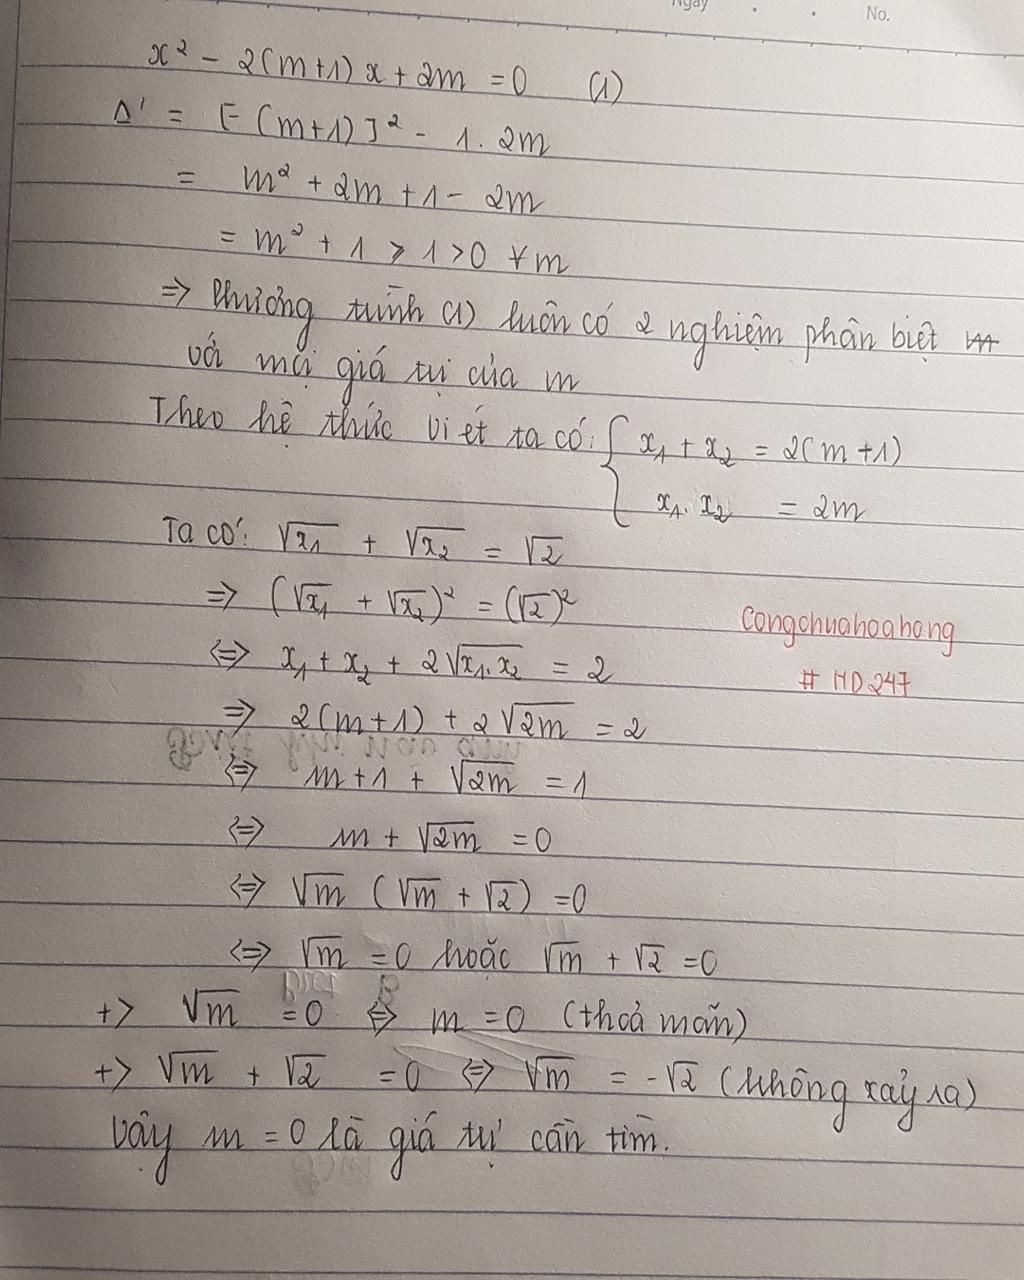 Ngày . .
No.
x² - 2(m+1)x + 2m = 0 (1)
Δ' = [-(m+1)]² - 1.2m
= m² + 2m + 1 - 2m
= m² + 1 ≥ 1 > 0 ∀m
=> Phương trình (1) luôn có 2 nghiệm phân biệt
với mọi giá trị của m
Theo hệ thức Vi ét ta có: { x₁ + x₂ = 2(m+1)
x₁.x₂ = 2m
Ta có: √x₁ + √x₂ = √2
=> (√x₁ + √x₂)² = (√2)²
Congchuahoahong
<=> x₁ + x₂ + 2√x₁.x₂ = 2
# HD247
=> 2(m+1) + 2√2m = 2
<=> m + 1 + √2m = 1
<=> m + √2m = 0
<=> √m (√m + √2) = 0
<=> √m = 0 hoặc √m + √2 = 0
+> √m = 0 <=> m = 0 (thoả mãn)
+> √m + √2 = 0 <=> √m = -√2 (không xảy ra)
Vậy m = 0 là giá trị cần tìm.